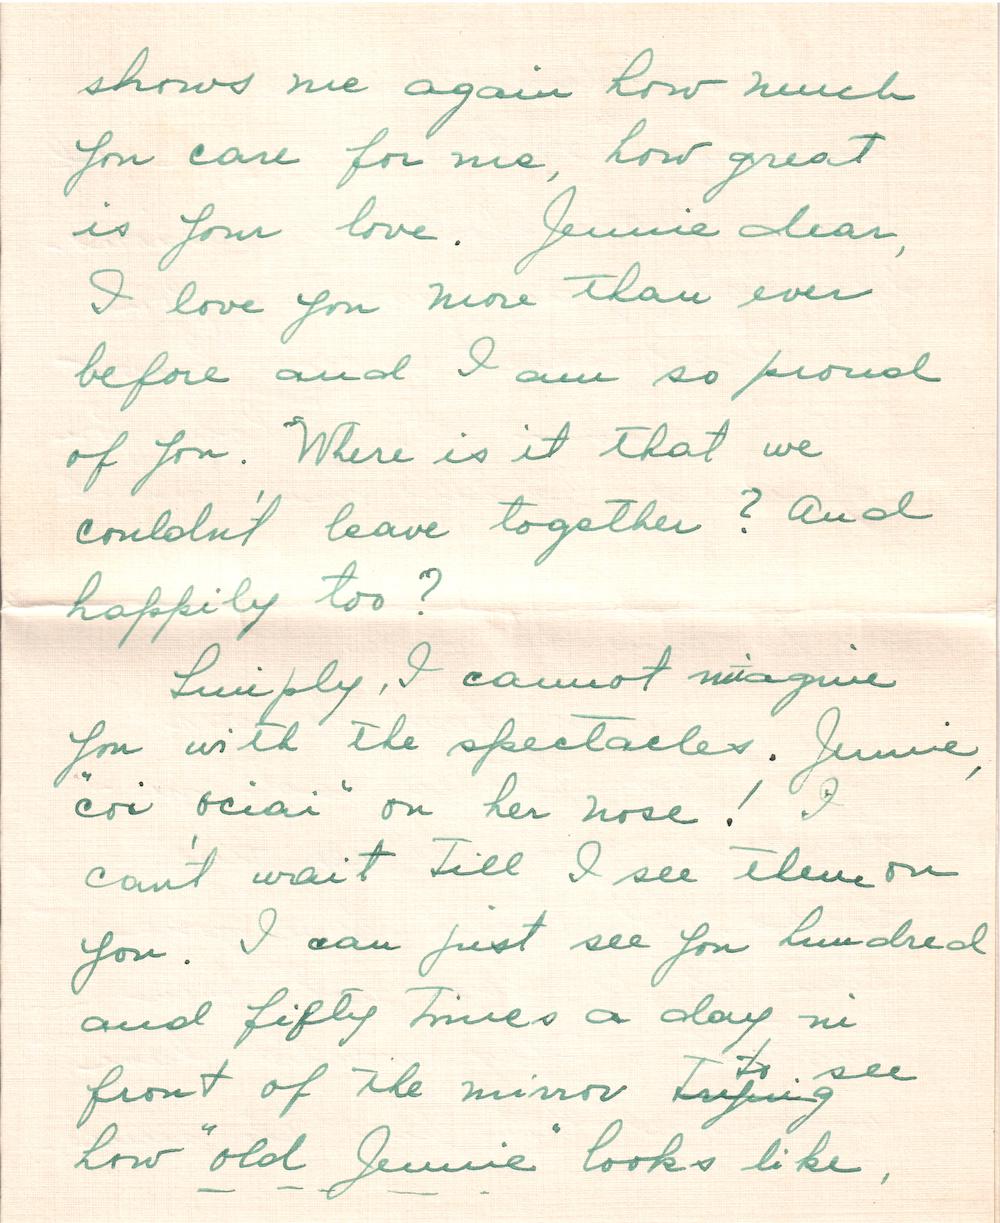 shows me again how much
you care for me, how great
is your love. Jennie dear,
I love you more than ever
before and I am so proud
of you. Where is it that we
couldn't leave together? And
happily too?
Simply, I cannot imagine
you with the spectacles. Jennie,
"coi ociai" on her nose! I
can't wait till I see them on
you. I can just see you hundred
and fifty times a day in
front of the mirror trying to see
how "old Jennie" looks like,